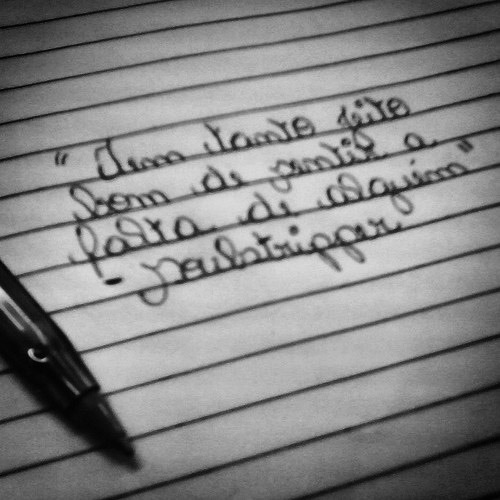 " Tem tanto jeito
bom de sentir a
falta de alguém"
- Soulstripper